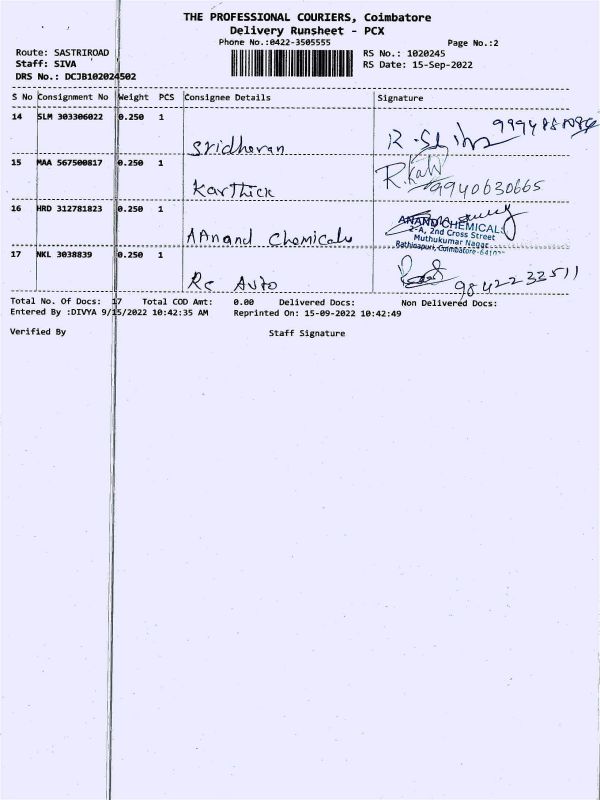 THE PROFESSIONAL COURIERS, Coimbatore
Delivery Runsheet - PCX
Phone No.:0422-3505555 Page No.:2
Route: SASTRIROAD RS No.: 1020245
Staff: SIVA RS Date: 15-Sep-2022
DRS No.: DCJB102024502
S No Consignment No Weight PCS Consignee Details Signature
14 SLM 303306022 0.250 1
Sridharan
15 MAA 567500817 0.250 1
Karthick 9940630665
16 HRD 312781823 0.250 1
ANAND CHEMICALS
2-A, 2nd Cross Street
Muthukumar Nagar
Rathinapuri, Coimbatore-
AAnand Chemicals
17 NKL 3038839 0.250 1
Rc Auto 9842233511
Total No. Of Docs: 17 Total COD Amt: 0.00 Delivered Docs: Non Delivered Docs:
Entered By :DIVYA 9/15/2022 10:42:35 AM Reprinted On: 15-09-2022 10:42:49
Verified By Staff Signature